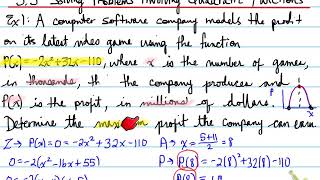 3.3 Solving Problems Involving Quadratic Functions
Ex1: A computer software company models the profit
on its latest video game using the function
P(x) = -2x²+32x-110, where x is the number of games,
in thousands, th the company produces and
P(x) is the profit, in millions of dollars.
Determine the profit the company can earn.
Z→ P(x)=0=-2x²+32x-110 A→ x=5+11/2=8
0=-2(x²-16x+55) P→ P(8)=-2(8)²+32(8)-110
P(8)=